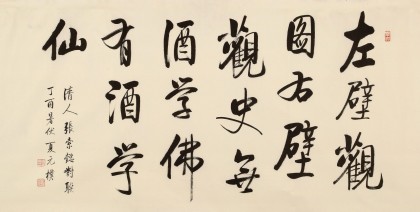 左壁觀
圖右壁
觀史無
酒學佛
有酒學
仙
清人張對聯
丁酉暑伏夏元樸